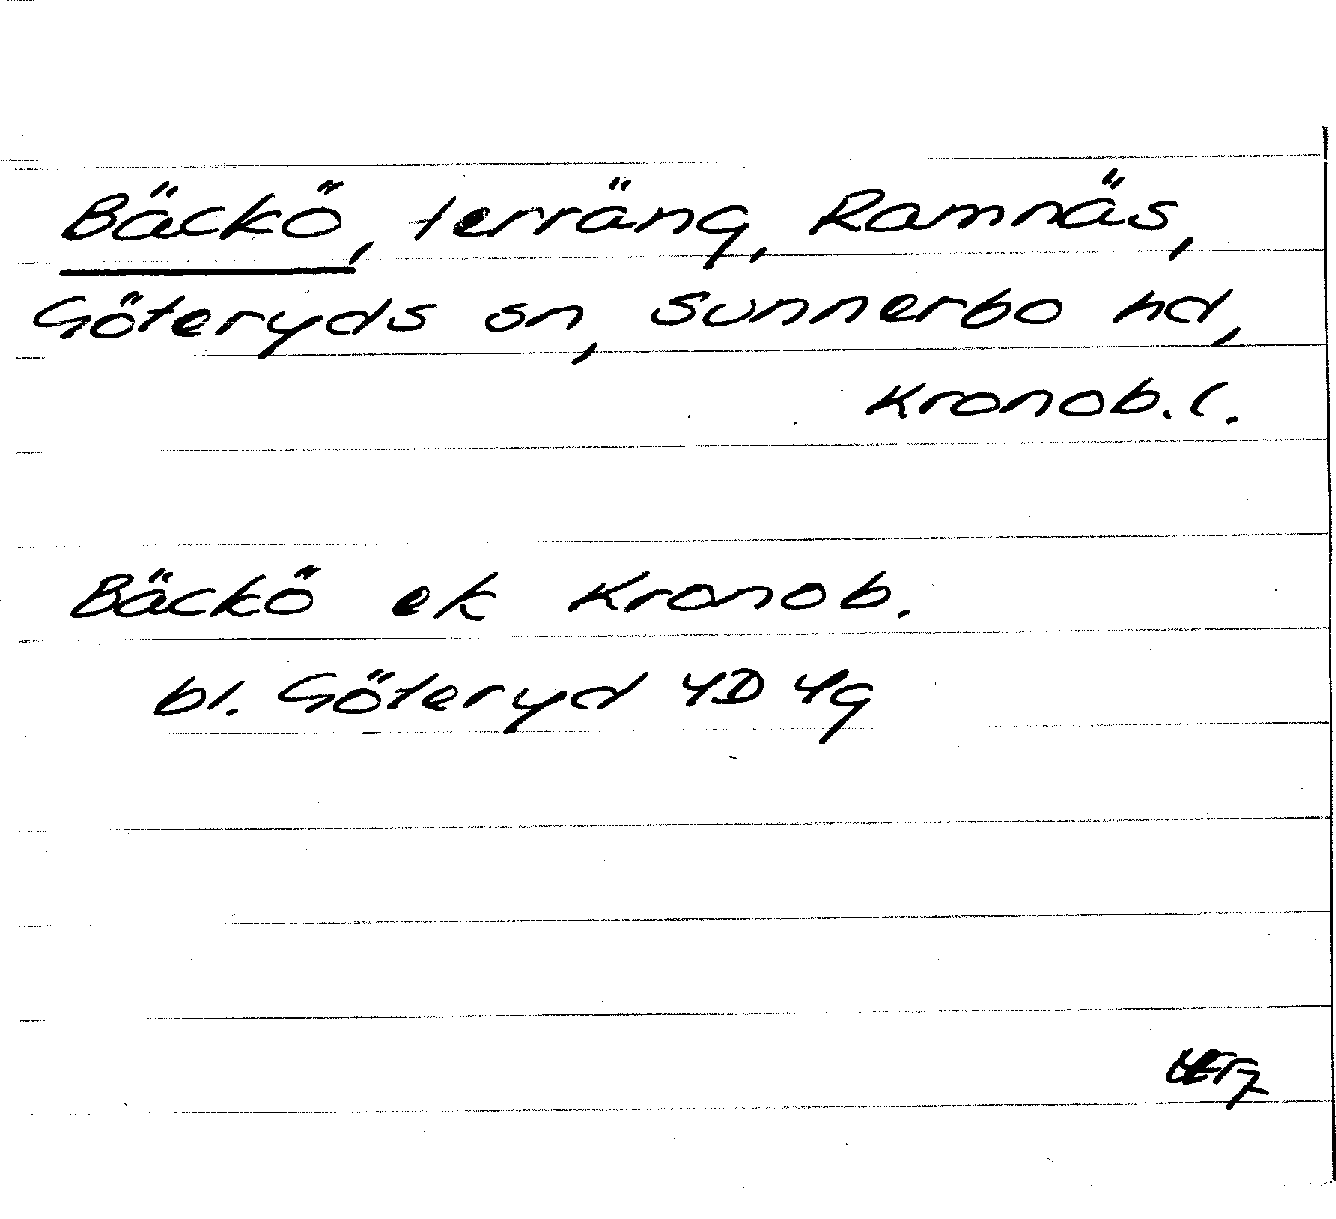 Bäckö, terräng, Ramnäs,
Göteryds sn, Sunnerbo hd,
Kronob. l.
Bäckö ek Kronob.
bl. Göteryd 4D 4g